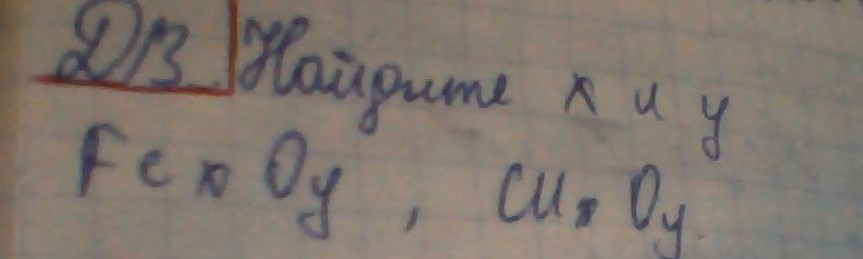 Д/З Найдите x и y
FexOy, CuxOy.